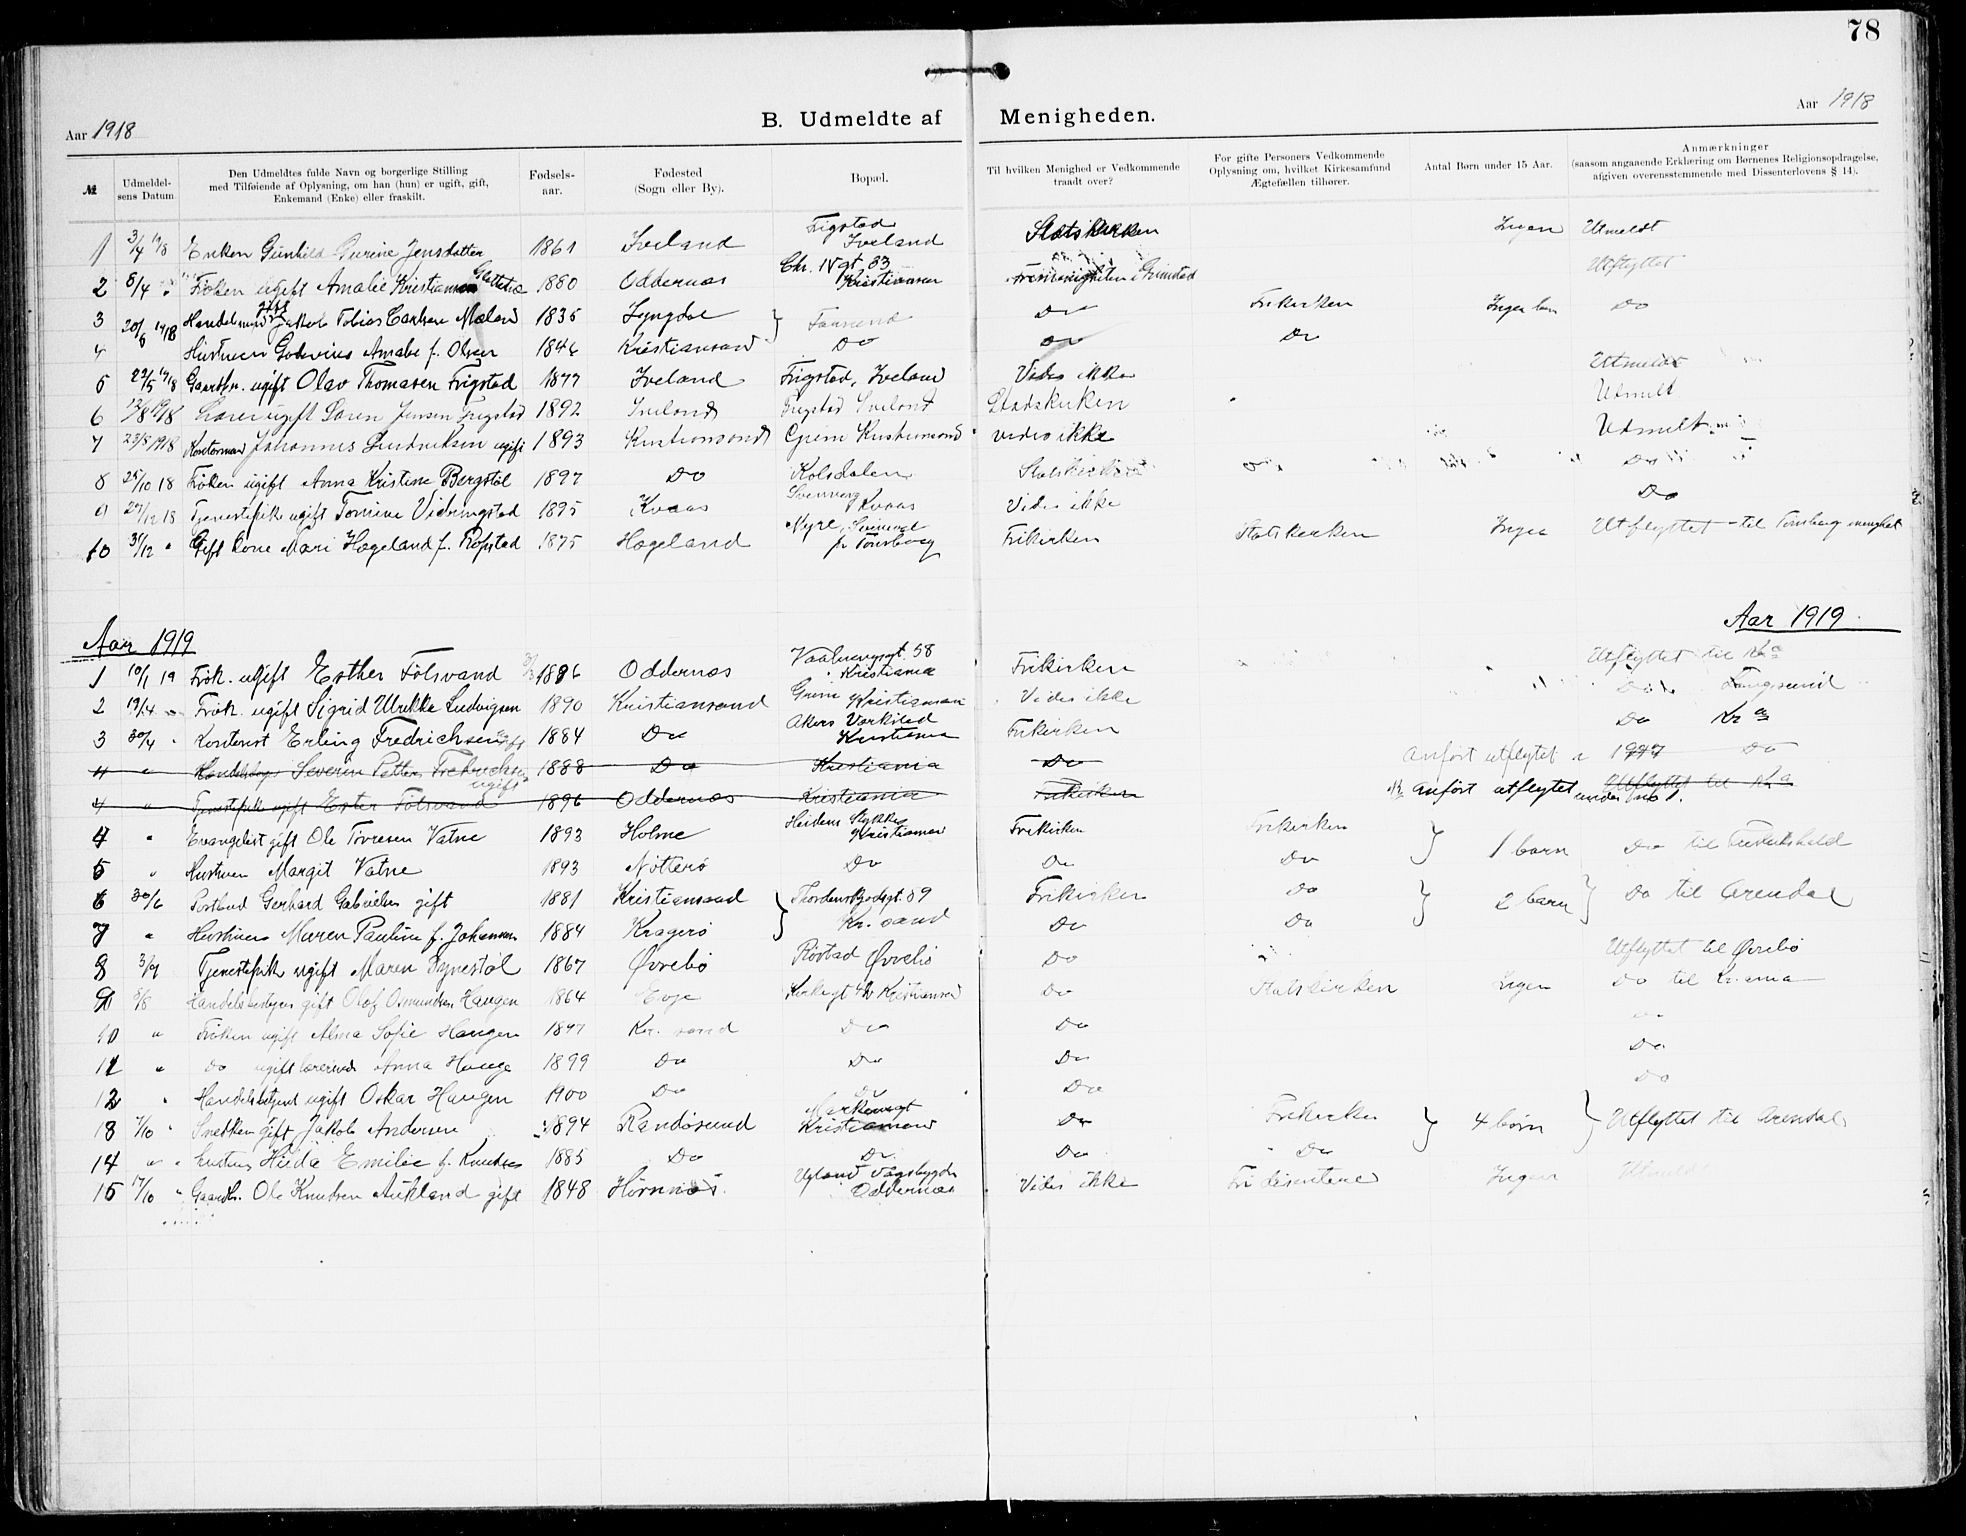 78
Aar 1918 B. Udmeldte af Menigheden. Aar 1918
№ | Udmeldelsens Datum | Den Udmeldtes fulde Navn og borgerlige Stilling med Tilføiende af Oplysning, om han (hun) er ugift, gift, Enkemand (Enke) eller fraskilt. | Fødselsaar. | Fødested (Sogn eller By). | Bopæl. | Til hvilken Menighed er Vedkommende traadt over? | For gifte Personers Vedkommende Oplysning om, hvilket Kirkesamfund Ægtefællen tilhører. | Antal Børn under 15 Aar. | Anmærkninger (saasom angaaende Erklæring om Børnenes Religionsopdragelse, afgiven overensstemmende med Dissenterlovens § 14).
1 3/4 1918 Enken Gunhild Gurine Jensdatter 1861 Iveland Frigstad Iveland Statskirken Ingen Utmeldt
2 8/4 " Frøken ugift Amalie Kristiansen 1880 Oddernæs Chr. IV gt 83 Kristiansan Frimenigheten i Grimstad Utflyttet
3 20/6 1918 gift Jakob Tobias Carlsen Mæland 1835 Lyngdal } Farsund Do Frikirken Ingen barn Do
4 Hustruen Amalie f. Olsen 1846 Kristiansand Do Do Do
5 29/5 1918 Gaardbr. ugift Olav Thomasen Frigstad 1877 Iveland Frigstad, Iveland Vides ikke Utmeldt
6 12/8 1918 ugift Søren Jensen Frigstad 1892 Iveland Frigstad Iveland Statskirken Utmelt
7 23/8 1918 Johannes ugift 1893 Kristiansand Grim Kristiansand vides ikke Utmelt
8 25/10 18 Frøken ugift Anna Kristine Bergstøl 1897 Do Kolsdalen Statskirken Do
9 27/12 18 Tjenestepike ugift Tomine Vidringstad 1895 Kvaas Kvaas Vides ikke Do
10 31/12 " Gift Kone Mari Hageland f. Røpstad 1875 Hageland Nyre, Svinnal pr Tønsberg Frikirken Statskirken Ingen Utflyttet - til Tønsberg menighet
Aar 1919 Aar 1919.
1 10/1 19 Frøk. ugift Esther Følsvand 1896 Oddernæs 58 Kristiania Frikirken Utflyttet til Kr.a
2 19/4 " Frøk. ugift Sigrid Ulrikke Ludvigsen 1890 Kristiansand Grim Kristiansan Vides ikke Do Langesund
3 30/4 " Kontorist Erling Fredrichsen ugift 1884 Do Akers Værksted Kristiania Frikirken Do Kr.a
4 " Severin Petter Fredrichsen ugift 1888 Do Kristiania Do Anført utflyttet i 1917 Do
4 " Tjenestepike ugift Ester Følsvand 1896 Oddernæs Kristiania Frikirken Anført utflyttet under No 1. Utflyttet til Kr.a
4 " Evangelist gift Ole Torresen Vatne 1893 Holme Heidens Stykke Kristiansan Frikirken Frikirken } 1 barn Do til Fredrikshald
5 " Hustruen Margit Vatne 1893 Nøtterø Do Do Do
6 30/6 Postbud Gerhard Gabrielsen gift 1881 Kristiansand } Tordenskjoldsgt. 39 Frikirken Do } 2 barn } Do til Arendal
7 " Hustruen Maren Pauline f. Johansen 1884 Kragerø Kr. sand Do Do
8 3/7 Tjenestepike ugift Maren Synestøl 1867 Øvrebø Røstad Øvrebø Do Utflyttet til Øvrebø
9 8/8 Handelsbestyrer gift Olaf Osmundsen Haugen 1864 Evje Kirkegt Kristiansand Do Statskirken Ingen Do til Kr.ania
10 " Frøken ugift Alma Sofie Haugen 1897 Kr. sand Do Do
11 " Do ugift lærerinde Anna Hauge 1899 Do Do Do Do
12 " Handelsbetjent ugift Oskar Haugen 1900 Do Do Do Do
13 7/10 " Snekker gift Jakob Andersen 1894 Randøsund Markensgt Kristiansand Do Frikirken } 4 børn } Utflyttet til Arendal
14 " " hustru Hilda Emilie f. Knudsen 1885 Do Do Do Do
15 17/10 " Gaardbr. Ole Knutsen Aukland gift 1848 Hornnæs Vaagsbygd Oddernæs Vides ikke Fri disentere Ingen Utmeldt